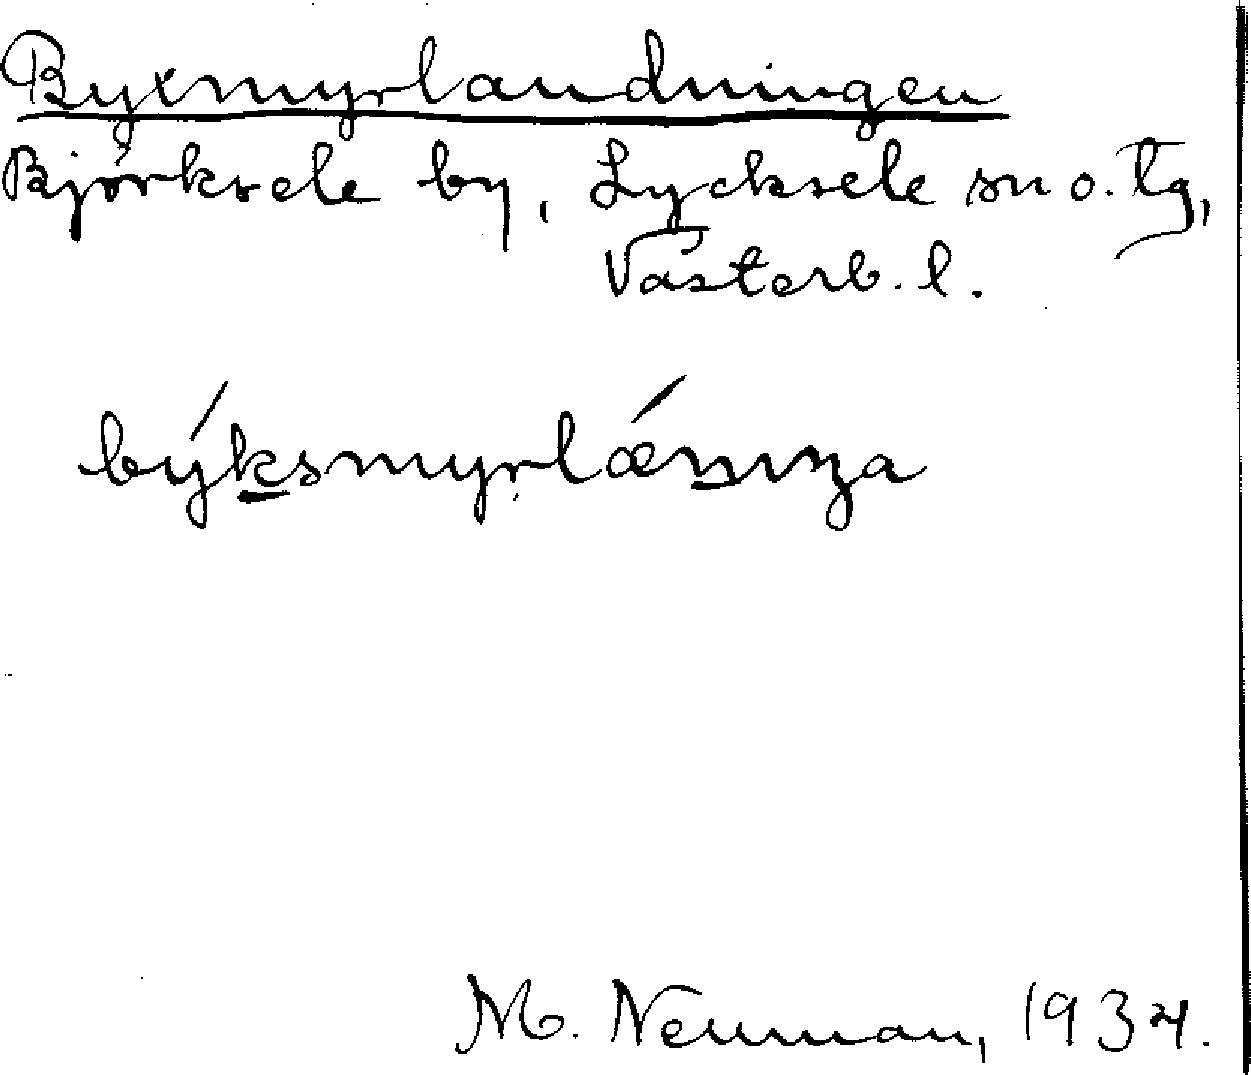 Byxmyrlandningen
Björksele by, Lycksele sn o. tg,
Västerb. l.
M. Neuman, 1934.